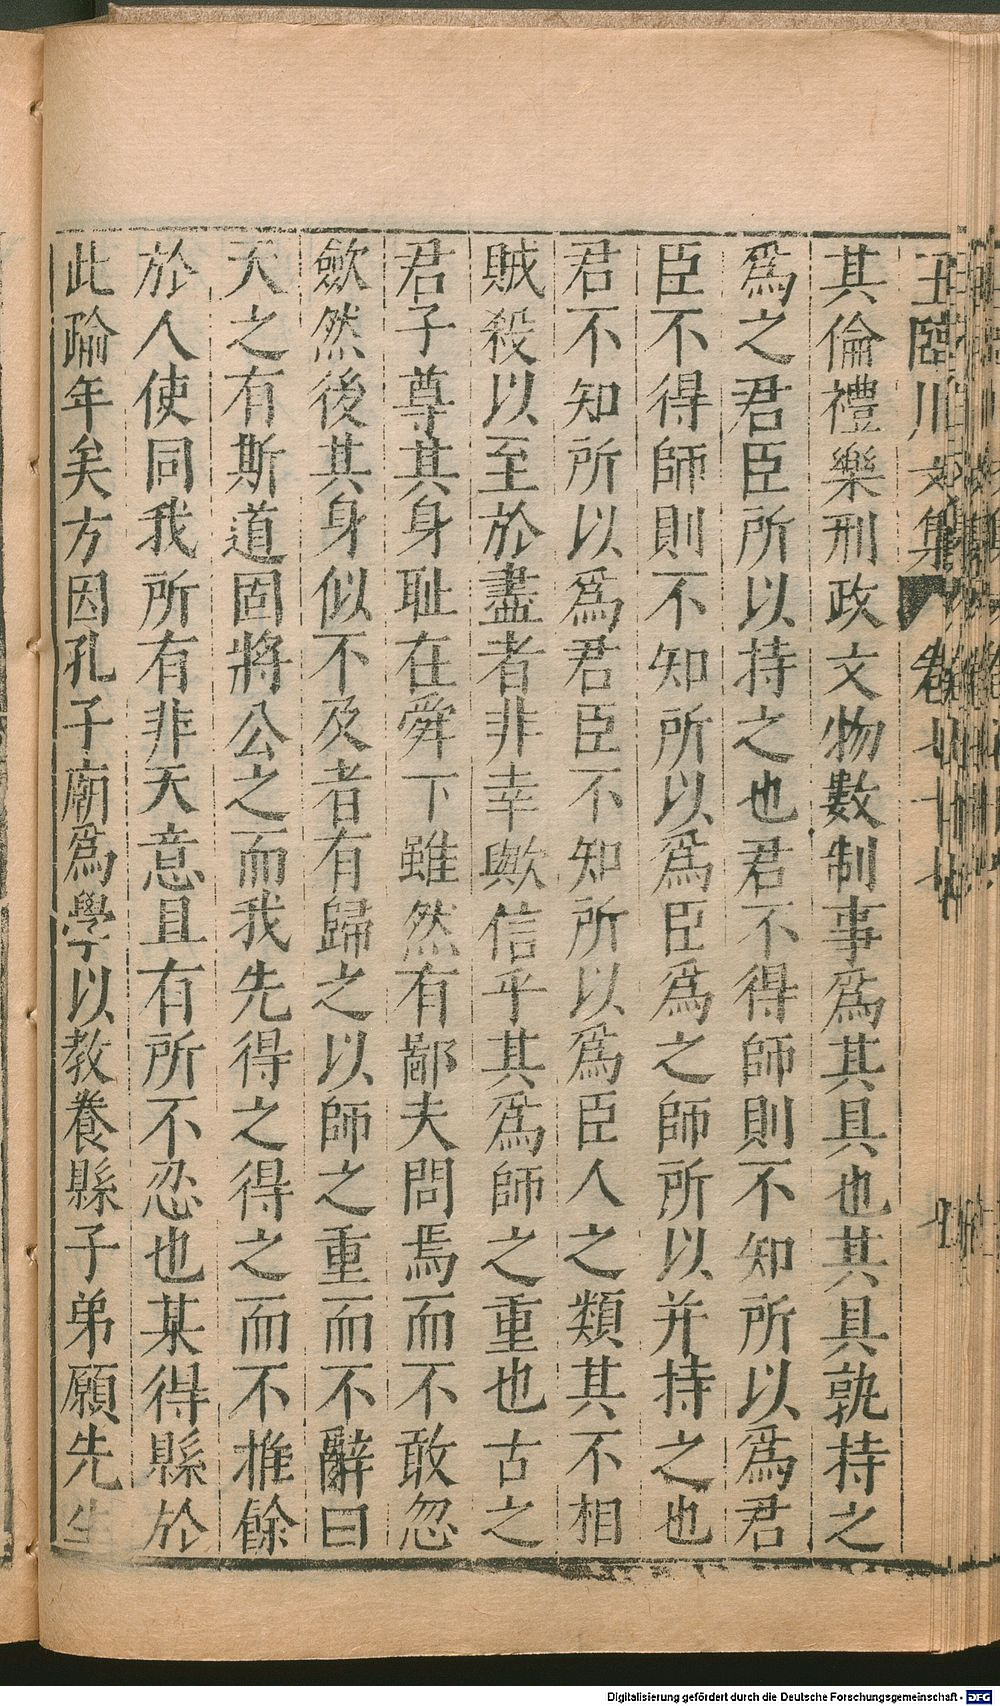 其倫禮樂刑政文物數制事爲其具也其具孰持之
爲之君臣所以持之也君不得師則不知所以爲君
臣不得師則不知所以爲臣爲之師所以并持之也
君不知所以爲君臣不知所以爲臣人之類其不相
賊殺以至於盡者非幸歟信乎其爲師之重也古之
君子尊其身耻在舜下雖然有鄙夫問焉而不敢忽
歛然後其身似不及者有歸之以師之重而不辭曰
天之有斯道固將公之而我先得之得之而不推餘
於人使同我所有非天意且有所不忍也某得縣於
此踰年矣方因孔子廟爲學以教養縣子弟願先生
Digitalisierung gefördert durch die Deutsche Forschungsgemeinschaft - DFG